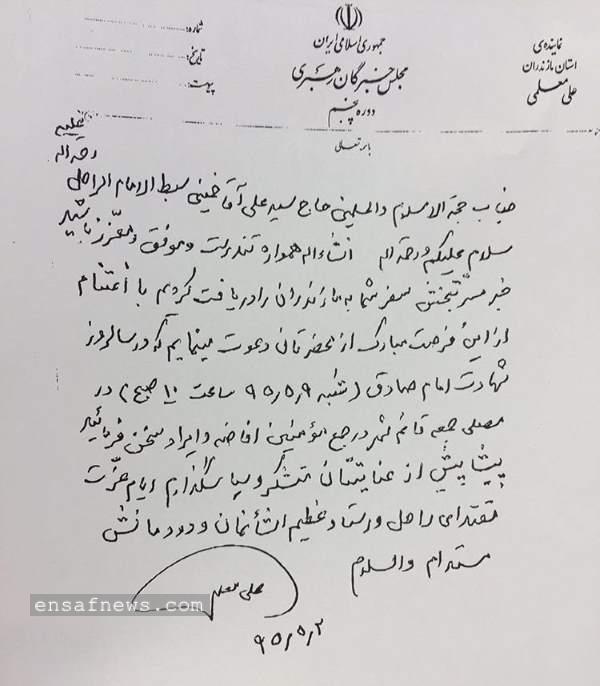 نماینده‌ی
استان مازندران
علی معلمی
جمهوری اسلامی ایران
مجلس خبرگان رهبری
دوره پنجم
شماره:
تاریخ:
پیوست:
باسمه تعالی
جناب حجة الاسلام والمسلمین حاج سید علی آقا خمینی سبط الامام الراحل
رحمة اله علیه
سلام علیکم ورحمة اله انشاءاله همواره تندرست وموفق ومعزز باشید
خبر مسرتبخش سفر شما به مازندران را دریافت کردیم با اغتنام
از این فرصت مبارک از محضرتان دعوت مینمایم که در سالروز
شهادت امام صادق (شنبه ۹۵/۵/۹ ساعت ۱۰ صبح) در
مصلی جمعه قائم شهر در جمع مؤمنین افاضه وایراد سخن فرمائید
پیشاپیش از عنایتتان متشکر وسپاسگذارم ایام عزت
مقتدای راحل ورستاد عظیم الشأنمان و دودمانش
مستدام والسلام
علی معلمی
۹۵/۵/۲
ensafnews.com